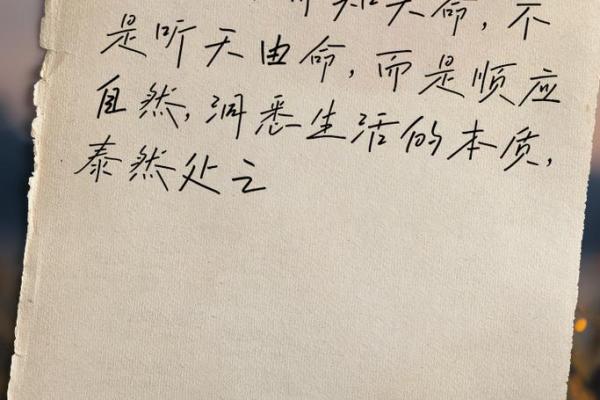 知天命，不
是听天由命，而是顺应
自然，洞悉生活的本质，
泰然处之